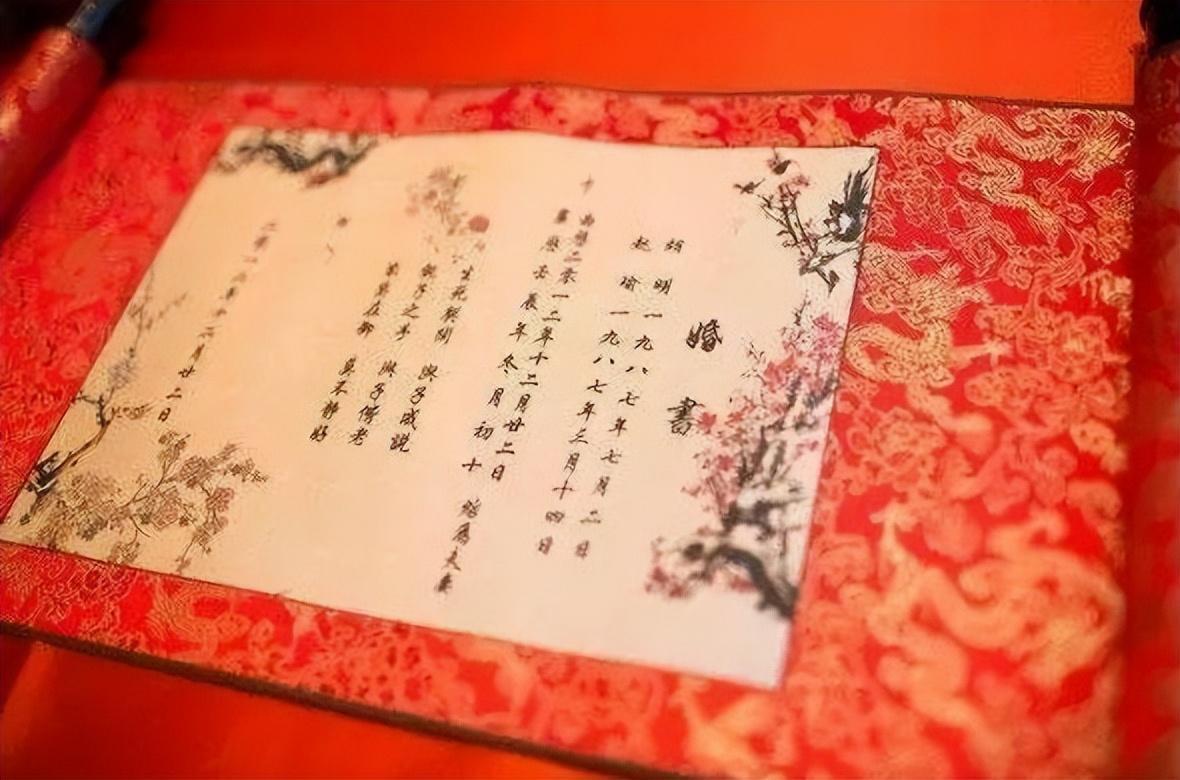 婚書
明 一九八七年七月二日
瑜 一九八七年三月十四日
曆二零一二年十二月廿二日
農曆壬辰年冬月初十 結爲夫妻
生死契闊 與子成説
執子之手 與子偕老
琴瑟在御 莫不靜好
二零一二年十二月廿二日